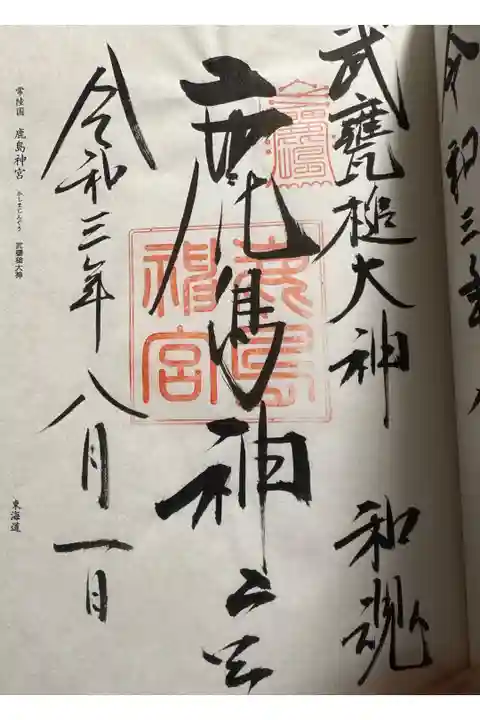 令和三年八
武甕槌大神 和魂
鹿島神宮
鹿島神宮
令和三年八月一日
常陸国 鹿島神宮 かしまじんぐう 武甕槌大神
東海道